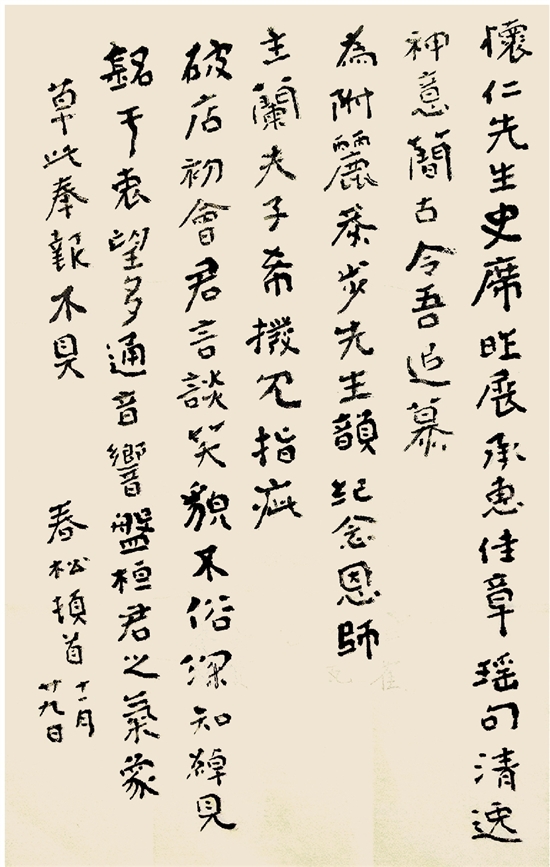 懷仁先生史席昨展承惠佳章瑶句清逸
神意簡古令吾追慕
為附麗恭步先生韻紀念恩師
主蘭夫子希撥冗指疵
破店初會君言談笑貌不俗深知綽見
銘于衷望多通音響盤桓君之氣象
草此奉報不具
春松頓首十一月
廿九日